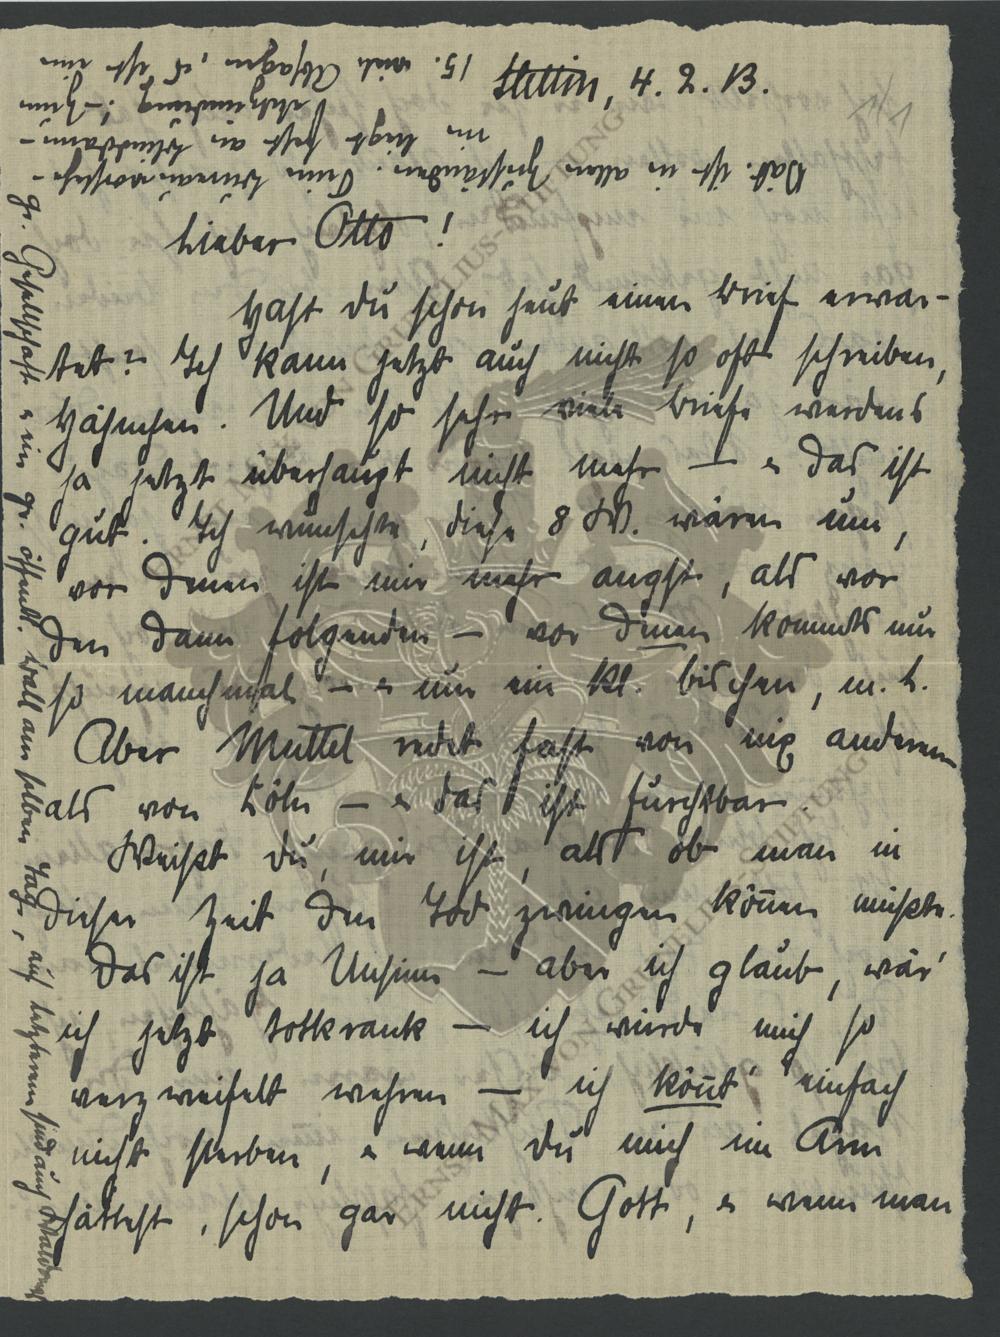 Stettin, 4. 2. 13.
Lieber Otto!
Hast du schon heut einen Brief erwar-
tet? Ich kann jetzt auch nicht so oft schreiben,
Hähnchen. Und so sehr viele Briefe werdens
ja jetzt überhaupt nicht mehr — & das ist
gut. Ich wünschte, diese 8 W. wären um,
vor denen ist mir mehr angst, als vor
den dann folgenden — vor denen kommts nur
so manchmal — & nur ein kl. bischen, m. L.
Aber Muttel redet fast von nix anderem
als von Köln — & das ist furchtbar.
Weißt du, mir ist, als ob man in
dieser Zeit den Tod zwingen könn̄en müßte.
Das ist ja Unsinn — aber ich glaub, wär'
ich jetzt totkrank — ich würde mich so
verzweifelt wehren — ich kön̄t' einfach
nicht sterben, & wenn du mich im Arm
hättest, schon gar nicht. Gott, & wenn man
gr. Gesellschaft & ein gr. öffentl. Ball am selben Tag, auf letzterem sind auch
Vat. ist in allen Zuständen. Sein Bureauvorsteh-
er liegt fest an Blinddarm-
entzündung; zum
15. viele Absagen, es ist ein